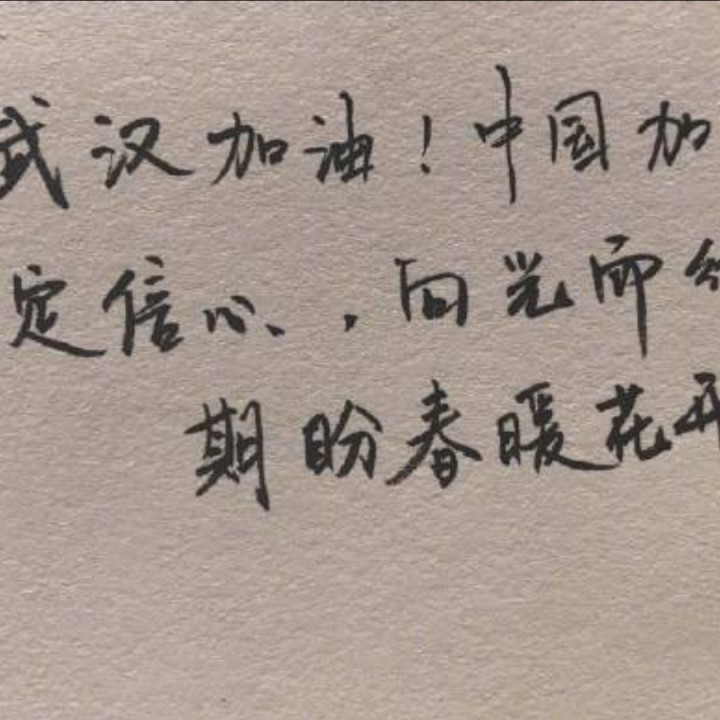 武汉加油！中国加
定信心，向光而
期盼春暖花开